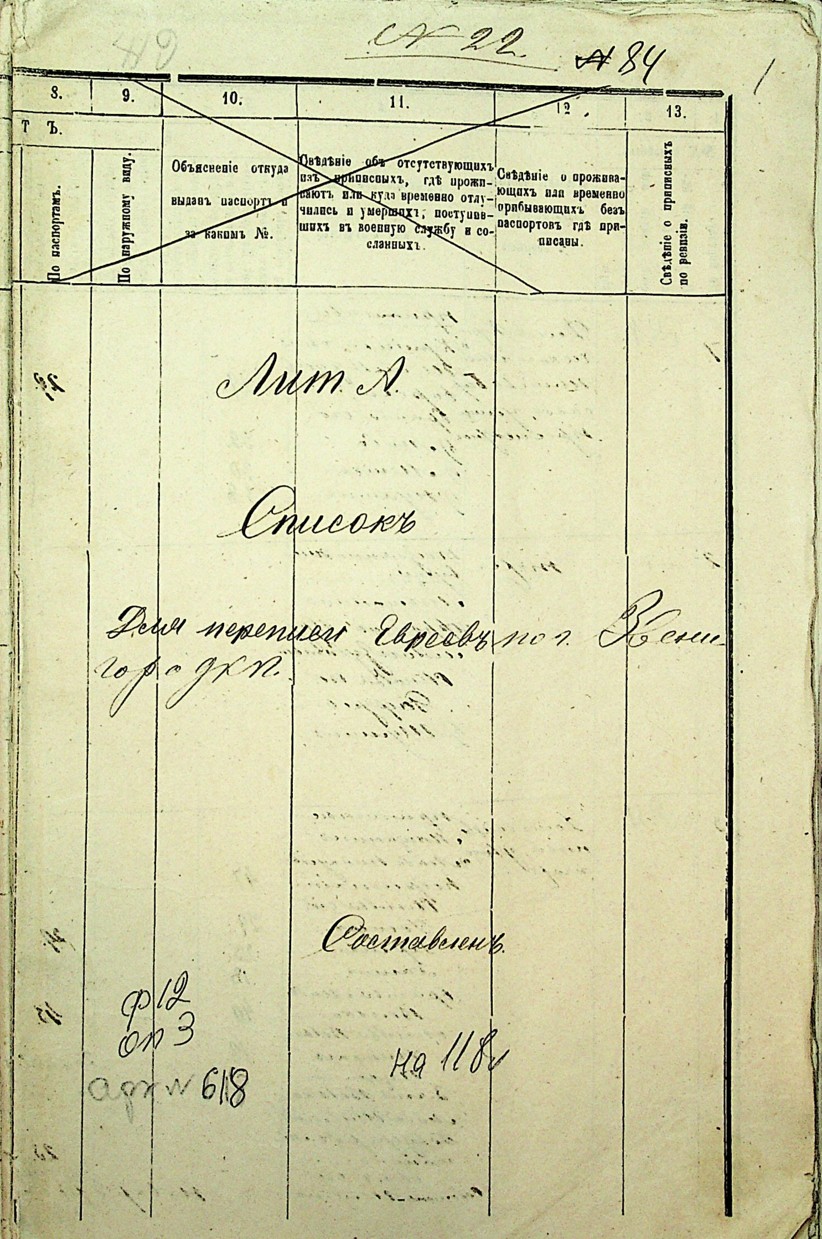 № 22
№ 84
1
8.
9.
10.
11.
12.
13.
Т Ъ.
По паспортамъ.
По наружному виду.
Объясненіе откуда
выданъ паспортъ и
за какимъ №.
Свѣдѣніе объ отсутствующихъ
изъ приписныхъ, гдѣ прожи-
ваютъ или куда временно отлу-
чились и умершихъ, поступив-
шихъ въ военную службу и со-
сланныхъ.
Свѣдѣніе о прожива-
ющихъ или временно
прибывающихъ безъ
паспортовъ гдѣ при-
писаны.
Свѣдѣніе о приписныхъ
по ревизіи.
Лит. А.
Списокъ
Для переписи Евреевъ по г. Звени-
городки.
Составленъ.
ф 12
оп 3
618
на 118 л